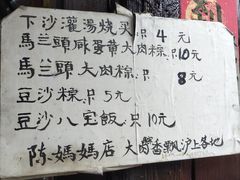 下沙灌湯烧买只4元
馬兰頭咸蛋黄大肉粽只10元
馬兰頭大肉粽只8元
豆沙粽只5元
豆沙八宝飯只10元
陈媽媽店大肉香飘沪上各地